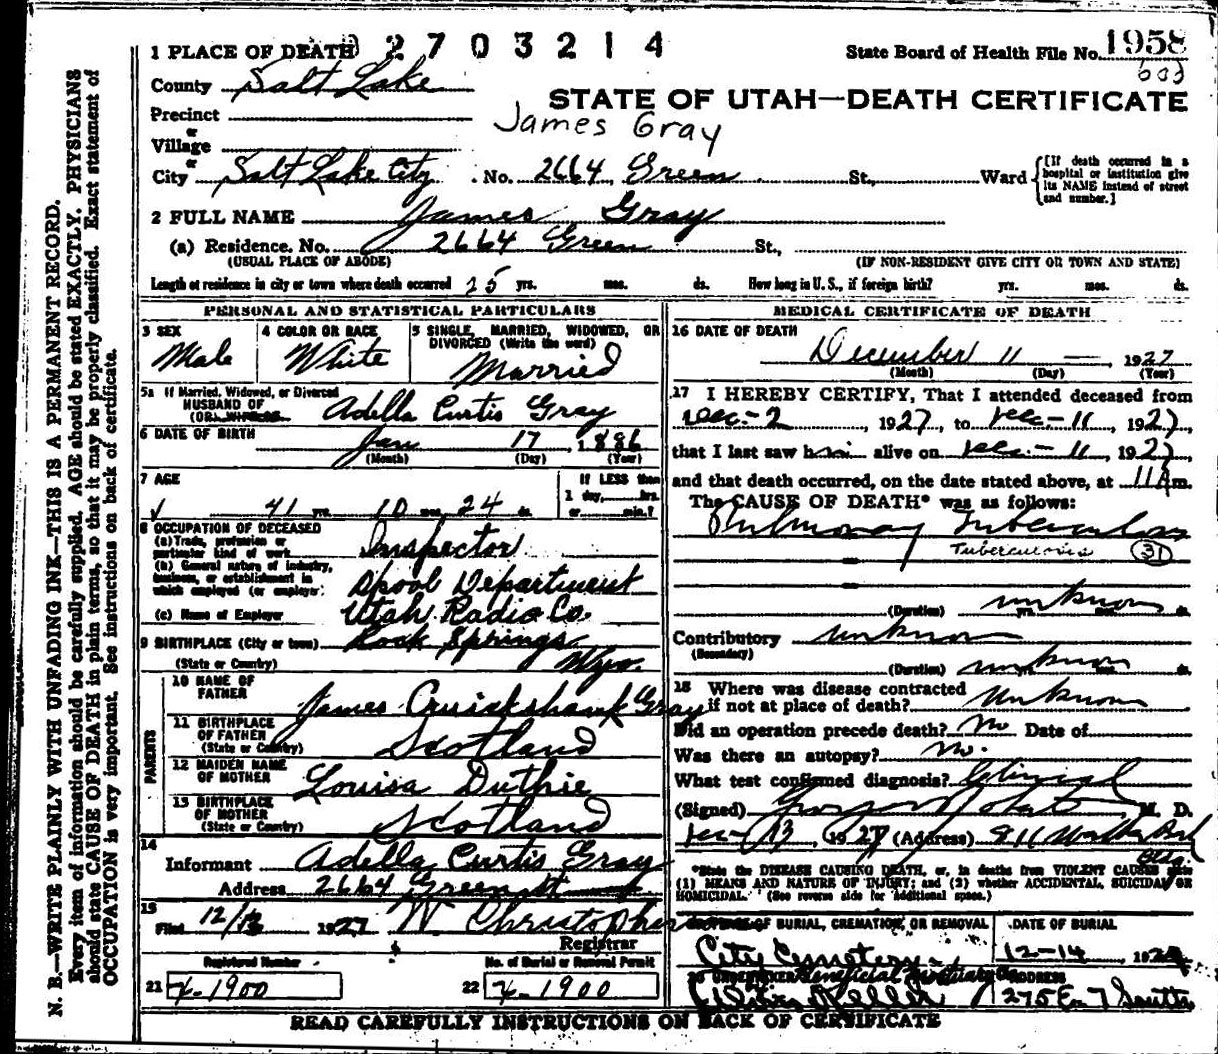 1 PLACE OF DEATH 2 7 0 3 2 1 4 State Board of Health File No. 1958
County Salt Lake
STATE OF UTAH—DEATH CERTIFICATE
Precinct
James Gray
or
Village
or
City Salt Lake City No. 2664 Green St., Ward
[If death occurred in a hospital or institution give its NAME instead of street and number.]
2 FULL NAME James Gray
(a) Residence. No. 2664 Green St.,
(USUAL PLACE OF ABODE) (IF NON-RESIDENT GIVE CITY OR TOWN AND STATE)
Length of residence in city or town where death occurred 25 yrs. mos. ds. How long in U. S., if foreign birth? yrs. mos. ds.
PERSONAL AND STATISTICAL PARTICULARS
3 SEX
Male
4 COLOR OR RACE
White
5 SINGLE, MARRIED, WIDOWED, OR DIVORCED (Write the word)
Married
5a If Married, Widowed, or Divorced
HUSBAND OF Adella Curtis Gray
(OR) WIFE OF
6 DATE OF BIRTH Jan 17 1886
(Month) (Day) (Year)
7 AGE
41 yrs. 10 mos. 24 ds.
If LESS than
1 day, hrs.
or min.?
8 OCCUPATION OF DECEASED
(a) Trade, profession or particular kind of work Inspector
(b) General nature of industry, business, or establishment in which employed (or employer) Spool Department
(c) Name of Employer Utah Radio Co.
9 BIRTHPLACE (City or town) Rock Springs
(State or Country) Wyo.
PARENTS
10 NAME OF FATHER James Cruickshank Gray
11 BIRTHPLACE OF FATHER (State or Country) Scotland
12 MAIDEN NAME OF MOTHER Louisa Duthie
13 BIRTHPLACE OF MOTHER (State or Country) Scotland
14
Informant Adella Curtis Gray
Address 2664 Green St
15
Filed 12/13 1927 W Christopher
Registrar
Registered Number No. of Burial or Removal Permit
21 X-1900 22 X-1900
MEDICAL CERTIFICATE OF DEATH
16 DATE OF DEATH
December 11 — 1927
(Month) (Day) (Year)
17 I HEREBY CERTIFY, That I attended deceased from
Dec-2, 1927, to Dec.-11, 1927,
that I last saw him alive on Dec.-11, 1927,
and that death occurred, on the date stated above, at 11 A m.
The CAUSE OF DEATH* was as follows:
Pulmonary Tuberculosis
Tuberculosis (31)
(Duration) unknown yrs. mos. ds.
Contributory unknown
(Secondary)
(Duration) unknown yrs. mos. ds.
18 Where was disease contracted
if not at place of death? Unknown
Did an operation precede death? No Date of
Was there an autopsy? No.
What test confirmed diagnosis? Clinical
(Signed) George N. Roberts M. D.
Dec 13, 1927 (Address) 911 Walker Bank Bldg.
*State the DISEASE CAUSING DEATH, or, in deaths from VIOLENT CAUSES state
(1) MEANS AND NATURE OF INJURY; and (2) whether ACCIDENTAL, SUICIDAL OR
HOMICIDAL. (See reverse side for additional space.)
PLACE OF BURIAL, CREMATION, OR REMOVAL
City Cemetery
DATE OF BURIAL
12-14, 192
20 UNDERTAKER Beneficial Mortuary ADDRESS
Keller 275 E. 7 South
READ CAREFULLY INSTRUCTIONS ON BACK OF CERTIFICATE
N. B.—WRITE PLAINLY WITH UNFADING INK—THIS IS A PERMANENT RECORD.
Every item of information should be carefully supplied. AGE should be stated EXACTLY. PHYSICIANS
should state CAUSE OF DEATH in plain terms, so that it may be properly classified. Exact statement of
OCCUPATION is very important. See instructions on back of certificate.